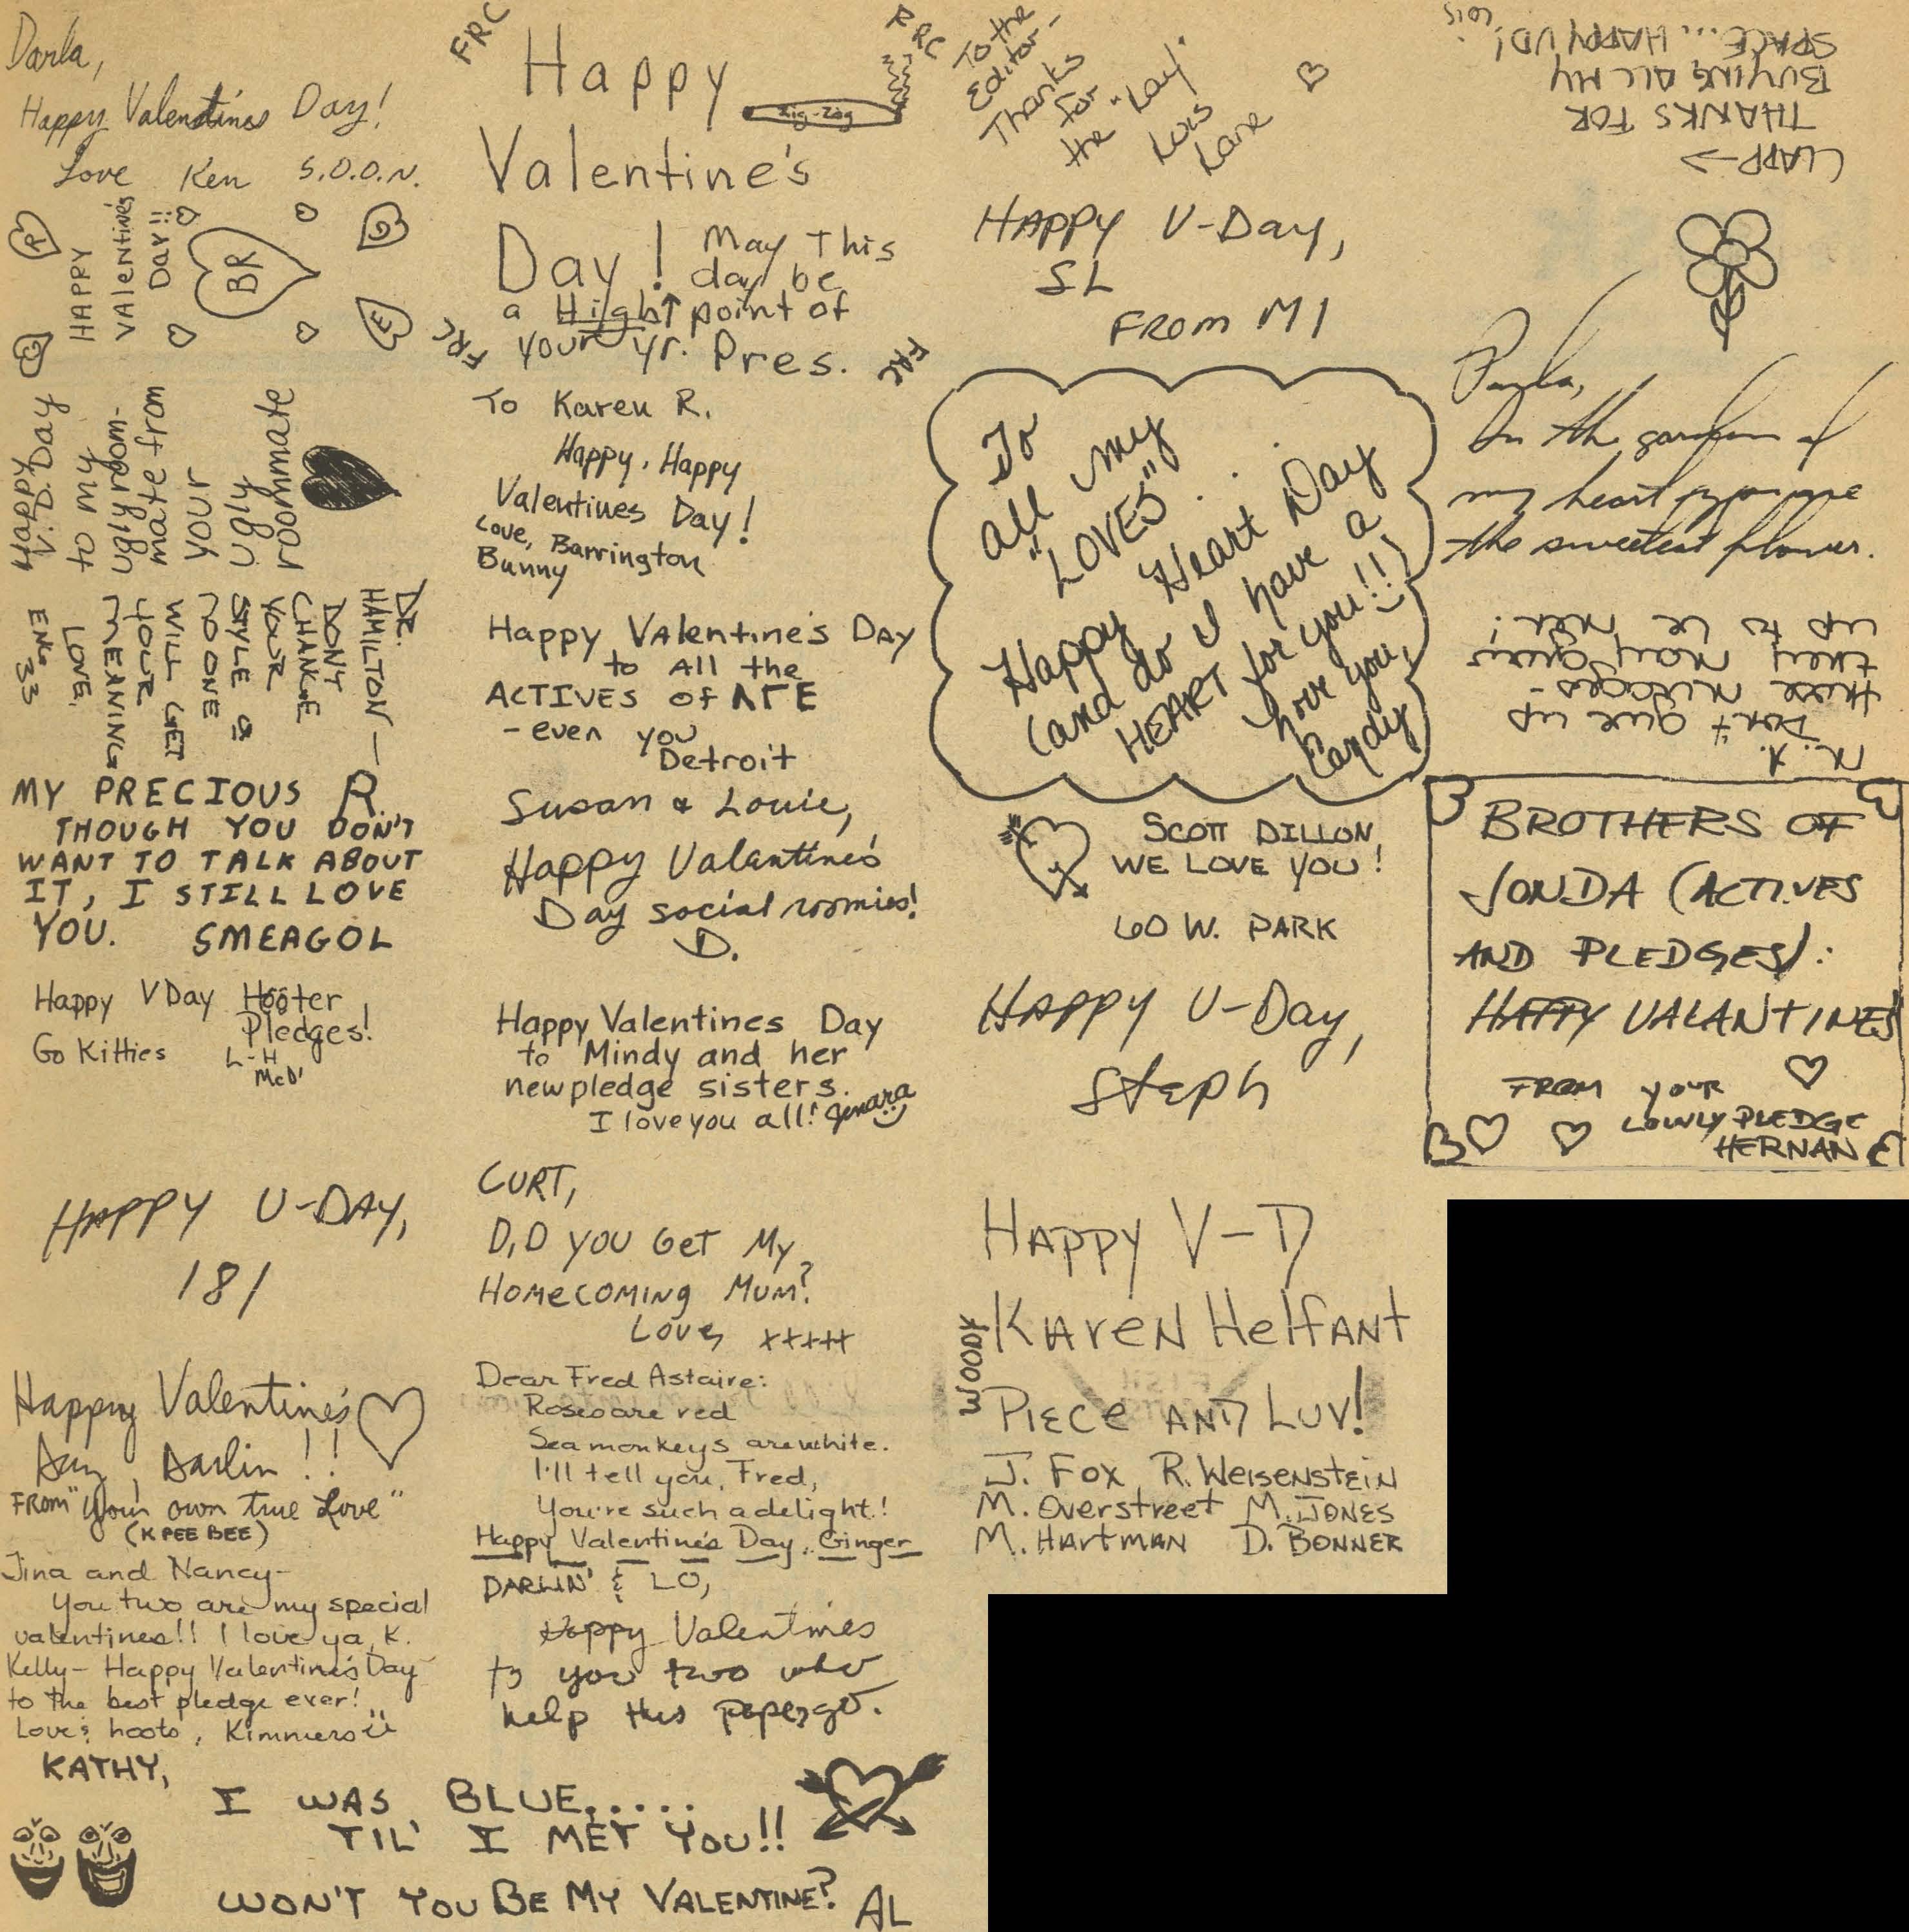 Darla,
Happy Valentines Day!
Love Ken S.O.O.N.
R
HAPPY
Valentine's
Day!!
BR
G
E
G
Happy
V.D. Day
to my
ugly room-
mate from
your
ugly
roommate
DR.
HAMILTON —
DON'T
CHANGE
YOUR
STYLE or
NO ONE
WILL GET
YOUR
MEANING
LOVE,
ENG 33
MY PRECIOUS R.
THOUGH YOU DON'T
WANT TO TALK ABOUT
IT, I STILL LOVE
YOU. SMEAGOL
Happy V Day Hooter
Pledges!
Go Kitties L-H
McD'
HAPPY V-DAY,
181
Happy Valentine's
Day, Darlin!!
FROM "Your own true Love"
(K PEE BEE)
Tina and Nancy-
You two are my special
valentines!! I love ya, K.
Kelly- Happy Valentine's Day
to the best pledge ever!
Love & hoots, Kimmers
KATHY,
I WAS BLUE.....
TIL' I MET YOU!!
WON'T YOU BE MY VALENTINE? AL
FRC
Happy
Zig-Zag
FRC
Valentine's
Day! May This
day be
a High↑ point of
your yr. Pres.
FRC
FRC
FAC
To Karen R.
Happy, Happy
Valentines Day!
Love, Barrington
Bunny
Happy Valentine's Day
to All the
ACTIVES of ΛΓE
- even you
Detroit
Susan & Louie,
Happy Valentine's
Day social roomies!
D.
Happy Valentines Day
to Mindy and her
new pledge sisters.
I love you all! Jenara
CURT,
DID YOU GET MY
HOMECOMING MUM?
Love, xxxxx
Dear Fred Astaire:
Roses are red
Sea monkeys are white.
I'll tell you, Fred,
You're such a delight!
Happy Valentine's Day, Ginger
DARLIN' & LO,
Happy Valentines
to you two who
help this paper go.
To the
Editor-
Thanks
for
the "Lay".
Lois
Lane
HAPPY V-Day,
SL
FROM M1
To
all my
"LOVES"...
Happy Heart Day
(and do I have a
HEART for you!!)
Love you,
Candy
SCOTT DILLON
WE LOVE YOU!
60 W. PARK
HAPPY V-Day,
Steph
HAPPY V-D
KAREN HELFANT
WOODY
PIECE AND LUV!
J. FOX R. WEISENSTEIN
M. Overstreet M. JONES
M. HARTMAN D. BONNER
CLAPP→
THANKS FOR
BUYING ALL MY
SPACE... HAPPY VD!
Lois
Darla,
In the garden of
my heart you are
the sweetest flower.
M. A.
Don't give up
these nudges-
they may grow
up to be
BROTHERS OF
JONDA (ACTIVES
AND PLEDGES):
HAPPY VALANTINES
FROM your
LOWLY PLEDGE
HERNAN